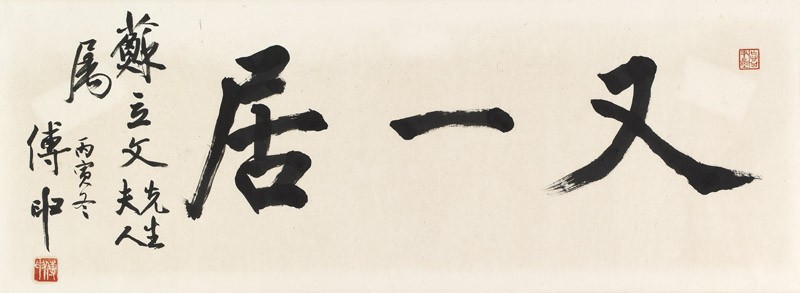 又一居
蘇立文先生
夫人
屬
丙寅冬
傅申